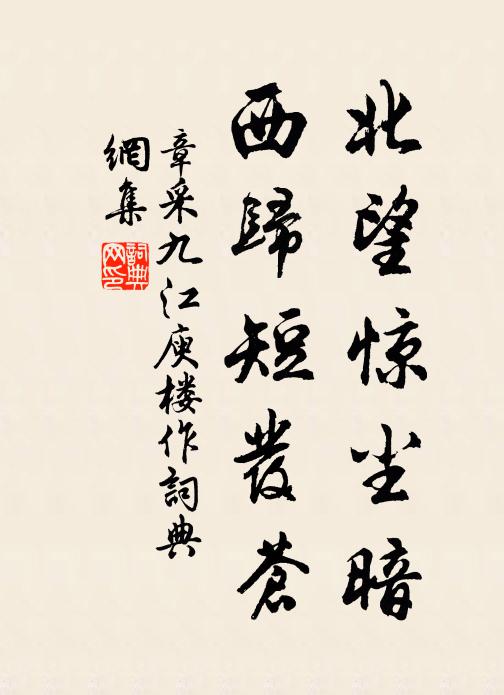 北望惊尘暗
西歸短髮蒼
章采九江庾楼作詞典
網集
詞典网印